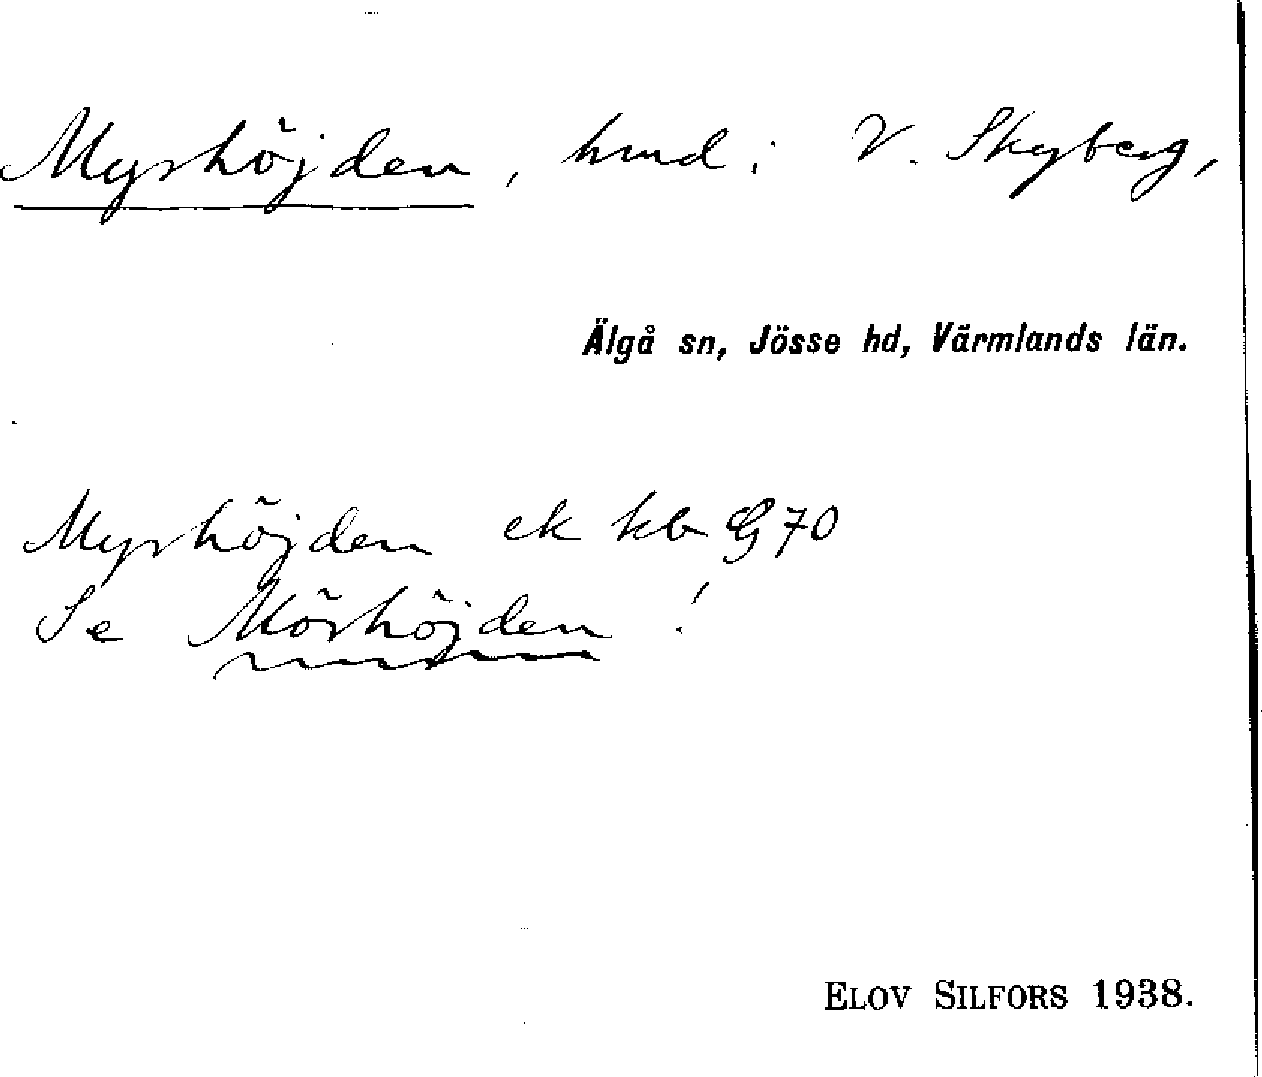 Myrhöjden, hmd i V. Skyberg,
Älgå sn, Jösse hd, Värmlands län.
Myrhöjden ek kb G 70
Se Mörhöjden!
ELOV SILFORS 1938.